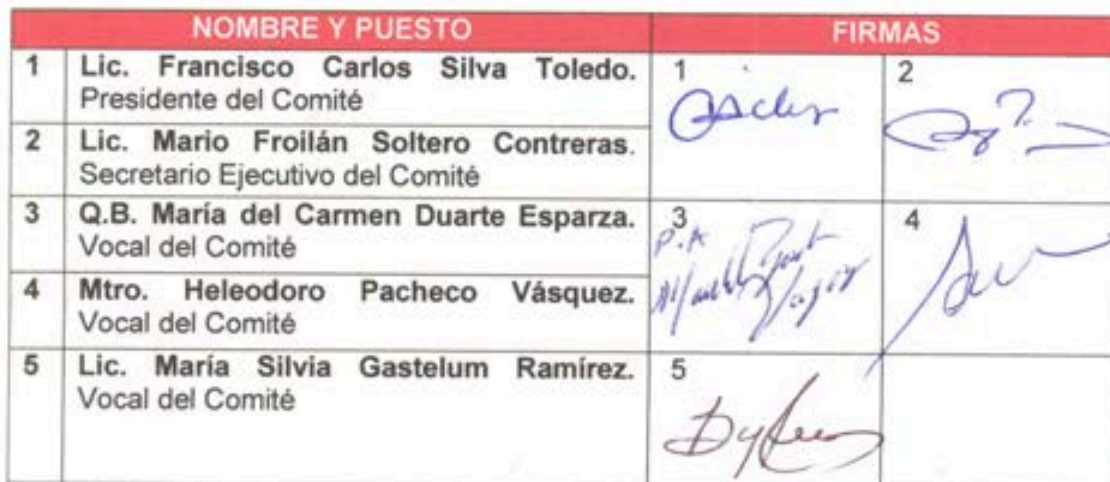 NOMBRE Y PUESTO FIRMAS
1 Lic. Francisco Carlos Silva Toledo. 1 2
Presidente del Comité
2 Lic. Mario Froilán Soltero Contreras.
Secretario Ejecutivo del Comité
3 Q.B. María del Carmen Duarte Esparza. 3 4
Vocal del Comité P.A
4 Mtro. Heleodoro Pacheco Vásquez.
Vocal del Comité
5 Lic. María Silvia Gastelum Ramírez. 5
Vocal del Comité